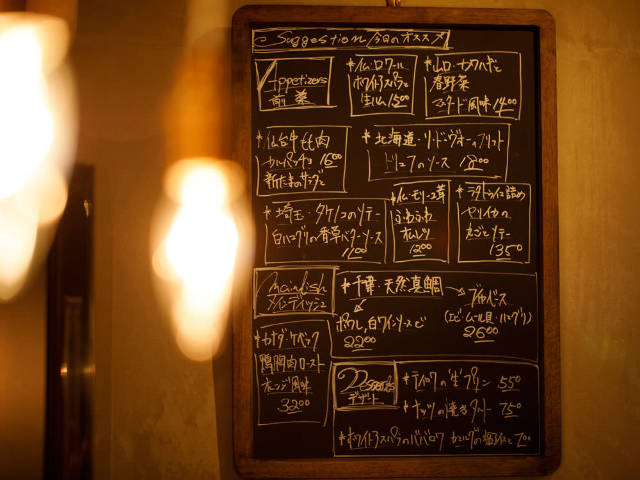 Suggestion 今日のオススメ
Appetizers
前菜
*仏・ロワール
ホワイトアスパラと
生ハム 1500
*山口・カメノテと
春野菜
マスタード風味 1400
*仙台牛モモ肉
カルパッチョ 1600
新たまのサラダと
*北海道・リ・ド・ヴォーのフリット
トリュフのソース 1800
*埼玉・タケノコのソテー
白ハマグリの香草バターソース
*仏・モリーユ茸
ふわふわ
オムレツ
*ラタトゥイユ詰め
ヤリイカの
丸ごとソテー
1350
Maindish
メインディッシュ
*千葉・天然真鯛
ポワレ,白ワインソースで
2200
ブイヤベース
(エビ・ムール貝・ハマグリ)
2600
*カナダ・ケベック
鴨胸肉ロースト
オレンジ風味
3200
Desserts
デザート
の"生"プリン 550
*ナッツの焼きタルト 750
*ホワイトアスパラのババロワ 700